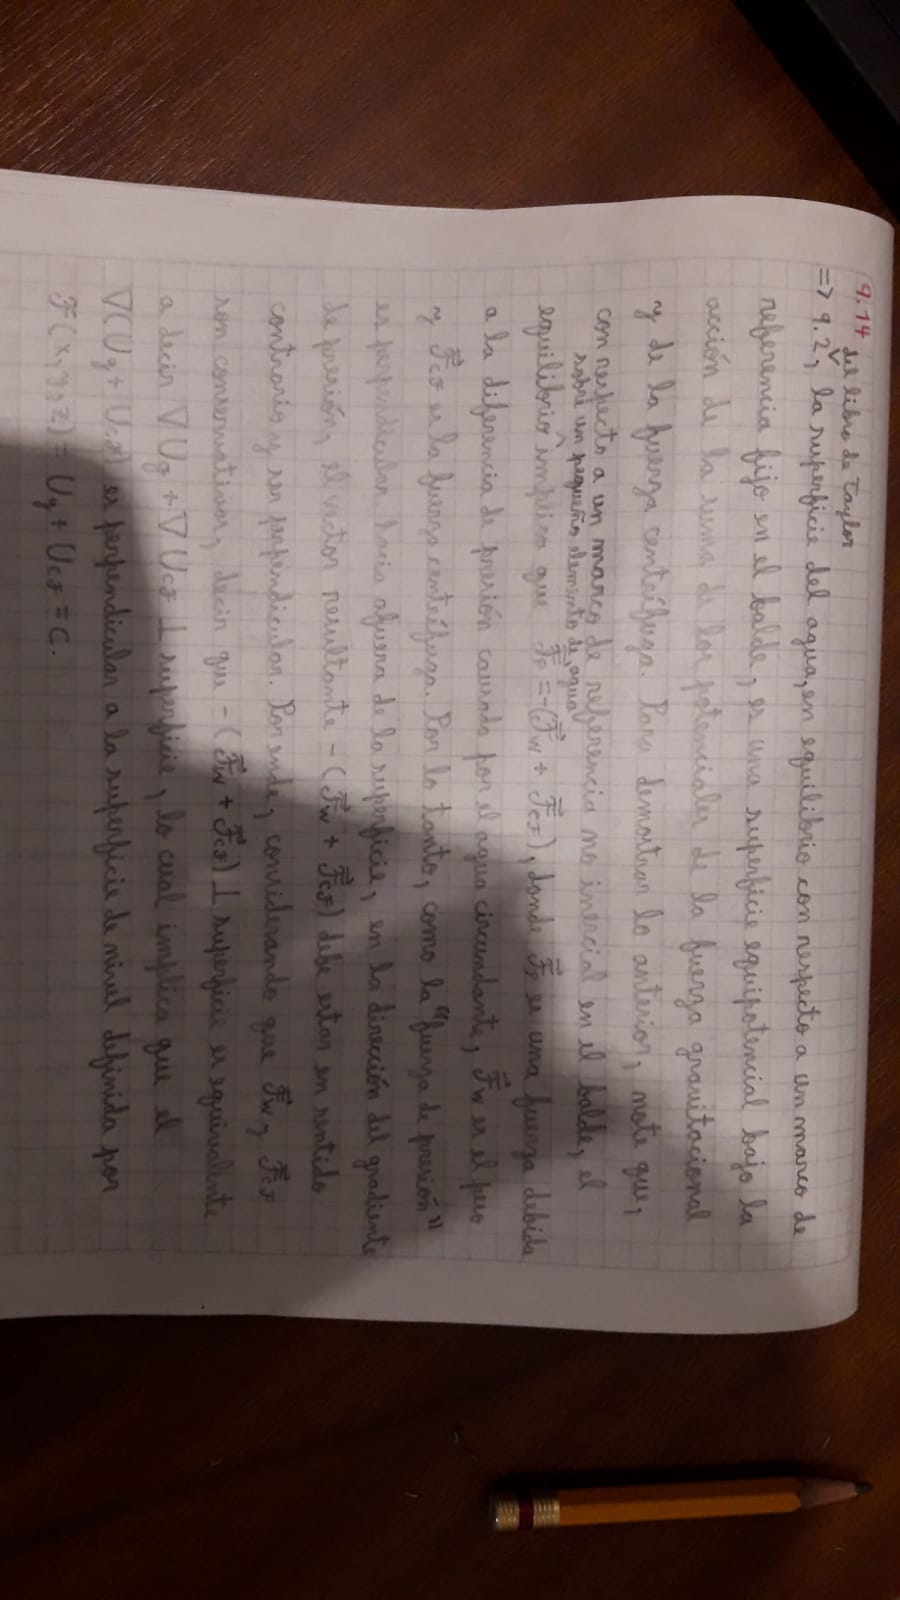 9.14 del libro de Taylor
=> 9.2, la superficie del agua, en equilibrio con respecto a un marco de
referencia fijo en el balde, es una superficie equipotencial bajo la
acción de la suma de los potenciales de la fuerza gravitacional
y de la fuerza centrífuga. Para demostrar lo anterior, note que,
con respecto a un marco de referencia no inercial en el balde, el
sobre un pequeño elemento de agua
equilibrio implica que F⃗p = -(F⃗w + F⃗cf), donde F⃗p es una fuerza debida
a la diferencia de presión causada por el agua circundante, F⃗w es el peso
y F⃗cf es la fuerza centrífuga. Por lo tanto, como la "fuerza de presión"
es perpendicular hacia afuera de la superficie, en la dirección del gradiente
de presión, el vector resultante -(F⃗w + F⃗cf) debe estar en sentido
contrario y ser perpendicular. Por ende, considerando que F⃗w y F⃗cf
son conservativas, decir que -(F⃗w + F⃗cf) ⊥ superficie es equivalente
a decir ∇Ug + ∇Ucf ⊥ superficie, lo cual implica que el
∇(Ug + Ucf) es perpendicular a la superficie de nivel definida por
F(x,y,z) = Ug + Ucf = C.